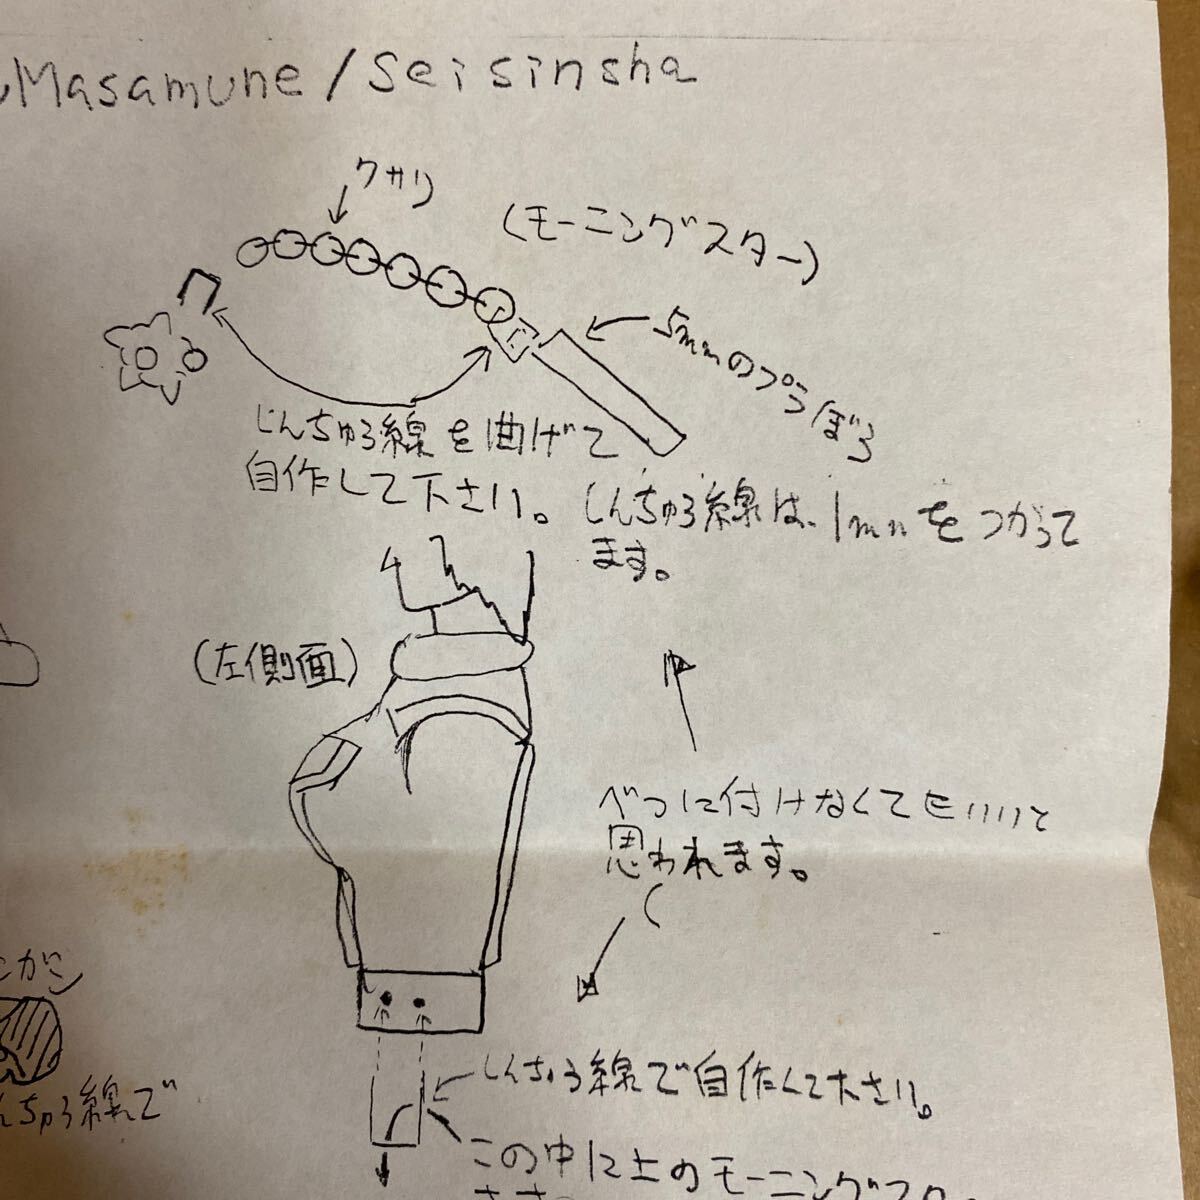 Masamune/Seisinsha
クサリ
(モーニングスター)
5mmのプラぼう
しんちゅう線を曲げて
自作して下さい。
しんちゅう線は、1mmをつかって
ます。
(左側面)
べつに付けなくてもいいと
思われます。
んちゅう線で
しんちゅう線で自作して下さい。
この中に上のモーニングスター